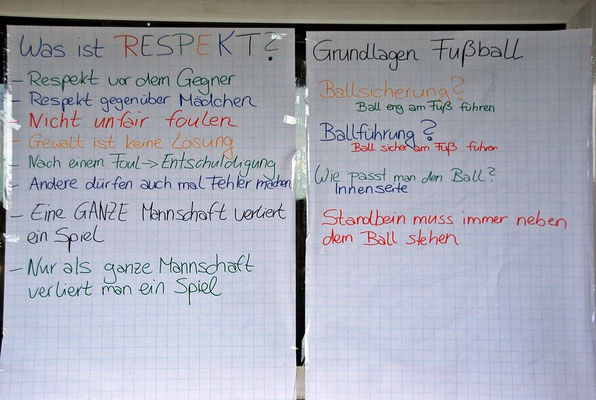 Was ist RESPEKT?
- Respekt vor dem Gegner
- Respekt gegenüber Mädchen
- Nicht unfair foulen
- Gewalt ist keine Lösung
- Nach einem Foul → Entschuldigung
- Andere dürfen auch mal Fehler machen
- Eine GANZE Mannschaft verliert
ein Spiel
- Nur als ganze Mannschaft
verliert man ein Spiel
Grundlagen Fußball
Ballsicherung?
Ball eng am Fuß führen
Ballführung?
Ball sicher am Fuß führen
Wie passt man den Ball?
Innenseite
Standbein muss immer neben
dem Ball stehen